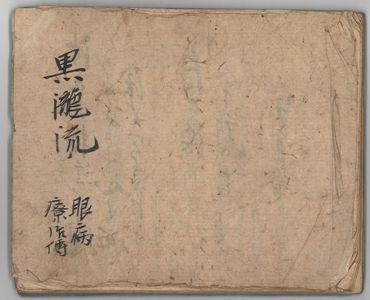 黒瀧流
眼病
療治傳